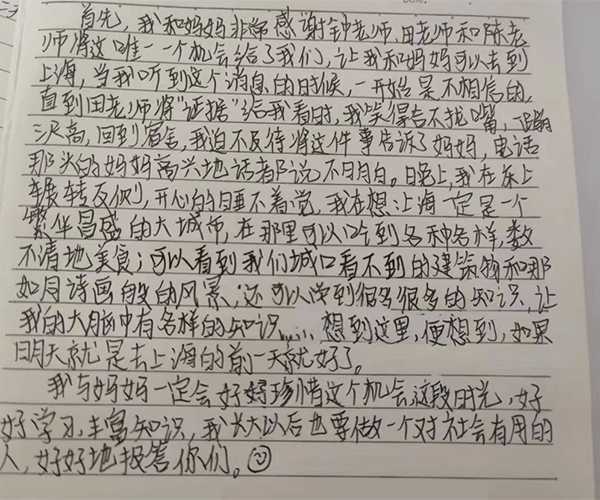 首先,我和妈妈非常感谢钟老师,田老师和陈老
师将这唯一一个机会给了我们,让我和妈妈可以去到
上海,当我听到这个消息的时候,一开始是不相信的,
直到田老师将"证据"给我看时,我笑得合不拢嘴,一蹦
三尺高,回到宿舍,我迫不及待将这件事告诉了妈妈,电话
那头的妈妈高兴地话都说不明白。晚上,我在床上
辗转反侧,开心的睡不着觉,我在想:上海一定是一个
繁华昌盛的大城市,在那里可以吃到各种各样,数
不清地美食;可以看到我们城口看不到的建筑物和那
如同诗画般的风景,还可以学到很多很多的知识,让
我的大脑中有各样的知识……想到这里,便想到,如果
明天就是去上海的前一天就好了。
我与妈妈一定会好好珍惜这个机会这段时光,好
好学习,丰富知识,我长大以后也要做一个对社会有用的
人,好好地报答你们。☺